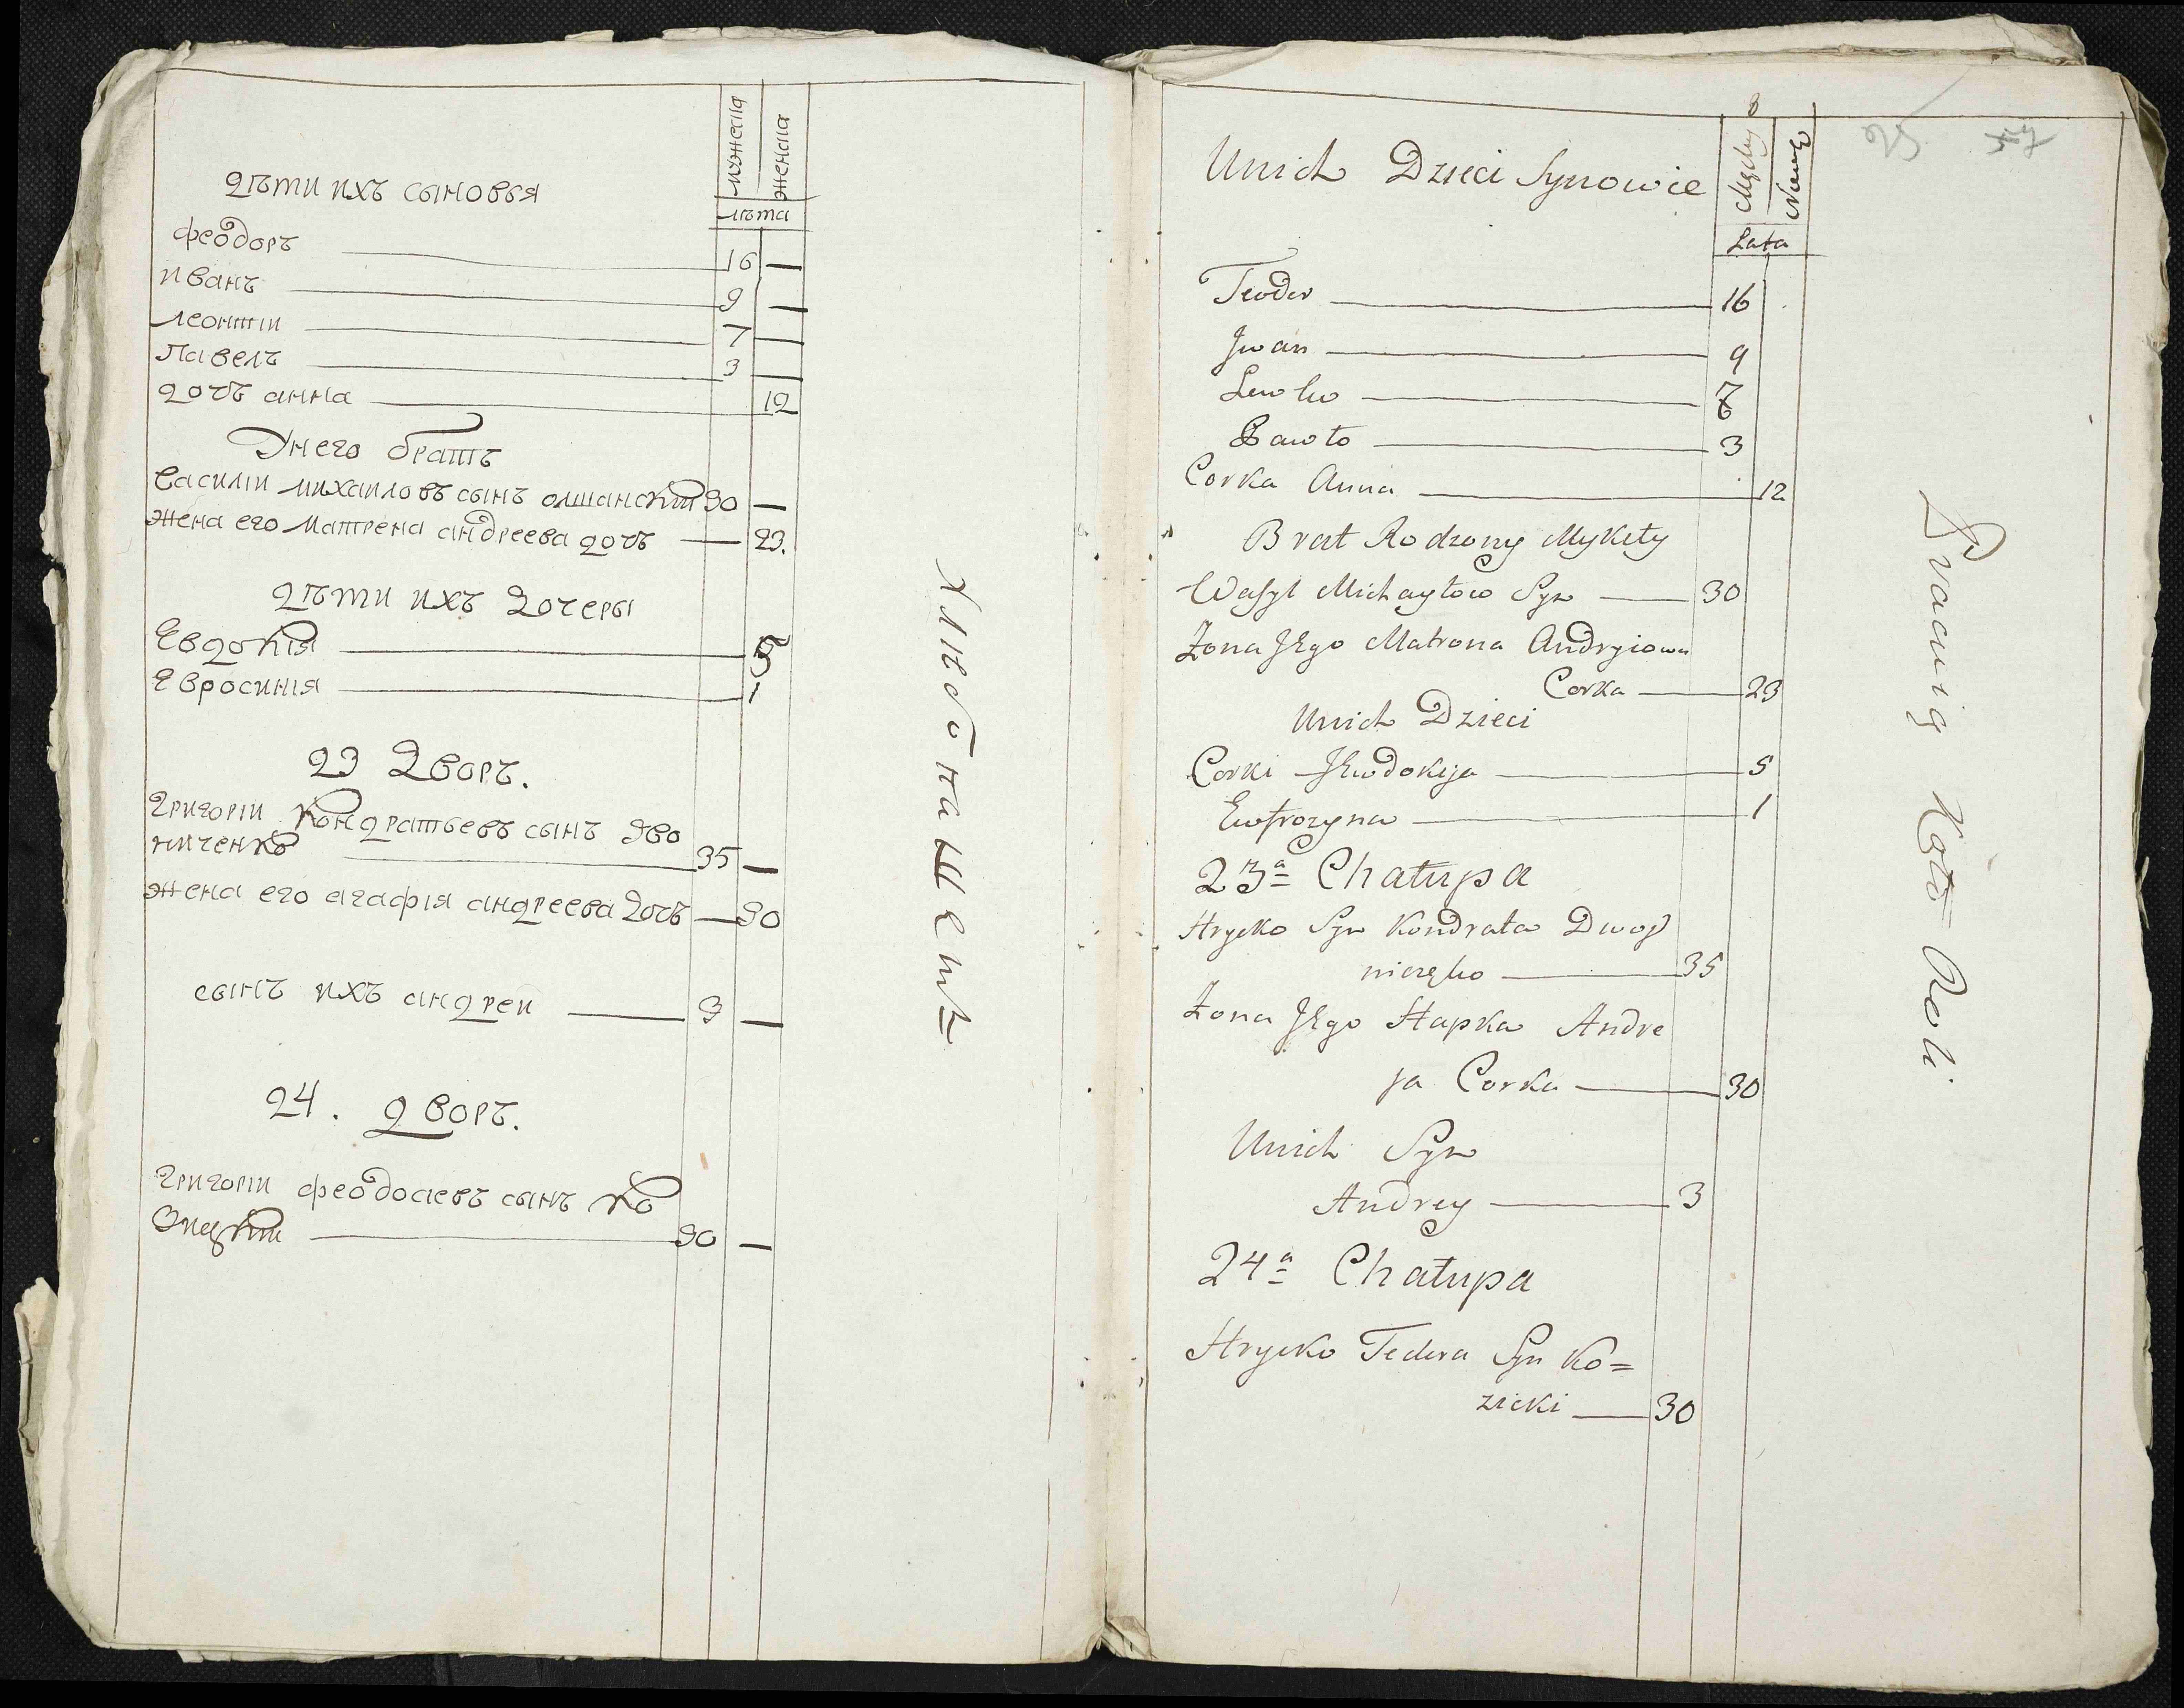 мужеска
женска
лѣта
дѣти ихъ сыновья
феодоръ 16 —
иванъ 9 —
леонтіи 7 —
павелъ 3 —
дочь анна 12
У него братъ
василіи михаиловъ сынъ олшанскіи 30 —
жена его матрена андреева дочь 23.
дѣти ихъ дочеры
Евдокія 5
Евросинія 1
23 Дворъ.
григоріи кондратьевъ сынъ дво
ниченко 35 —
жена его агафія андреева дочь 30
сынъ ихъ андреи 3 —
24. дворъ.
григоріи феодосиевъ сынъ ко
зицкіи 30 —
хлебпашецъ
25
Unich Dzieci Synowie
Lata
Teodor 16
Jwan 9
Lewko 7
Pawło 3
Corka Anna 12
Brat Rodzony Mykity
Wasyl Michayłow Syn 30
Zona JEgo Matrona Andryiowa
Corka 23
Unich Dzieci
Corki JEwdokija 5
Ewfrozyna 1
23a Chałupa
Hrycko Syn Kondrata Dwoy
niczęko 35
Zona JEgo Hapka Andre
ja Corka 30
Unich Syn
Andrey 3
24a Chałupa
Hrycko Tedera Syn Ko=
zicki 30
Pracuią Koło Roli